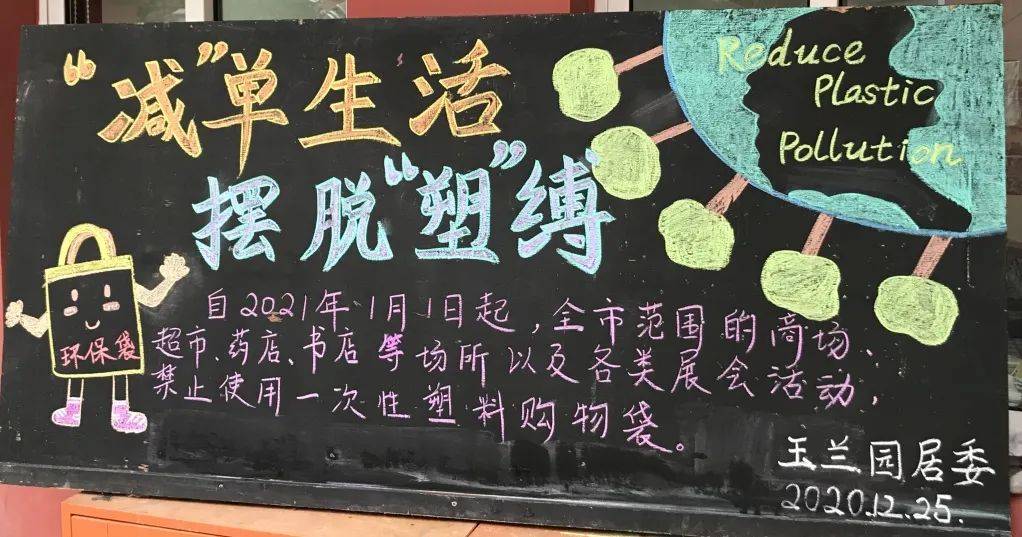 “减”单生活
摆脱“塑”缚
Reduce
Plastic
Pollution
环保袋
自2021年1月1日起,全市范围的商场、
超市、药店、书店等场所以及各类展会活动,
禁止使用一次性塑料购物袋。
玉兰园居委
2020.12.25.